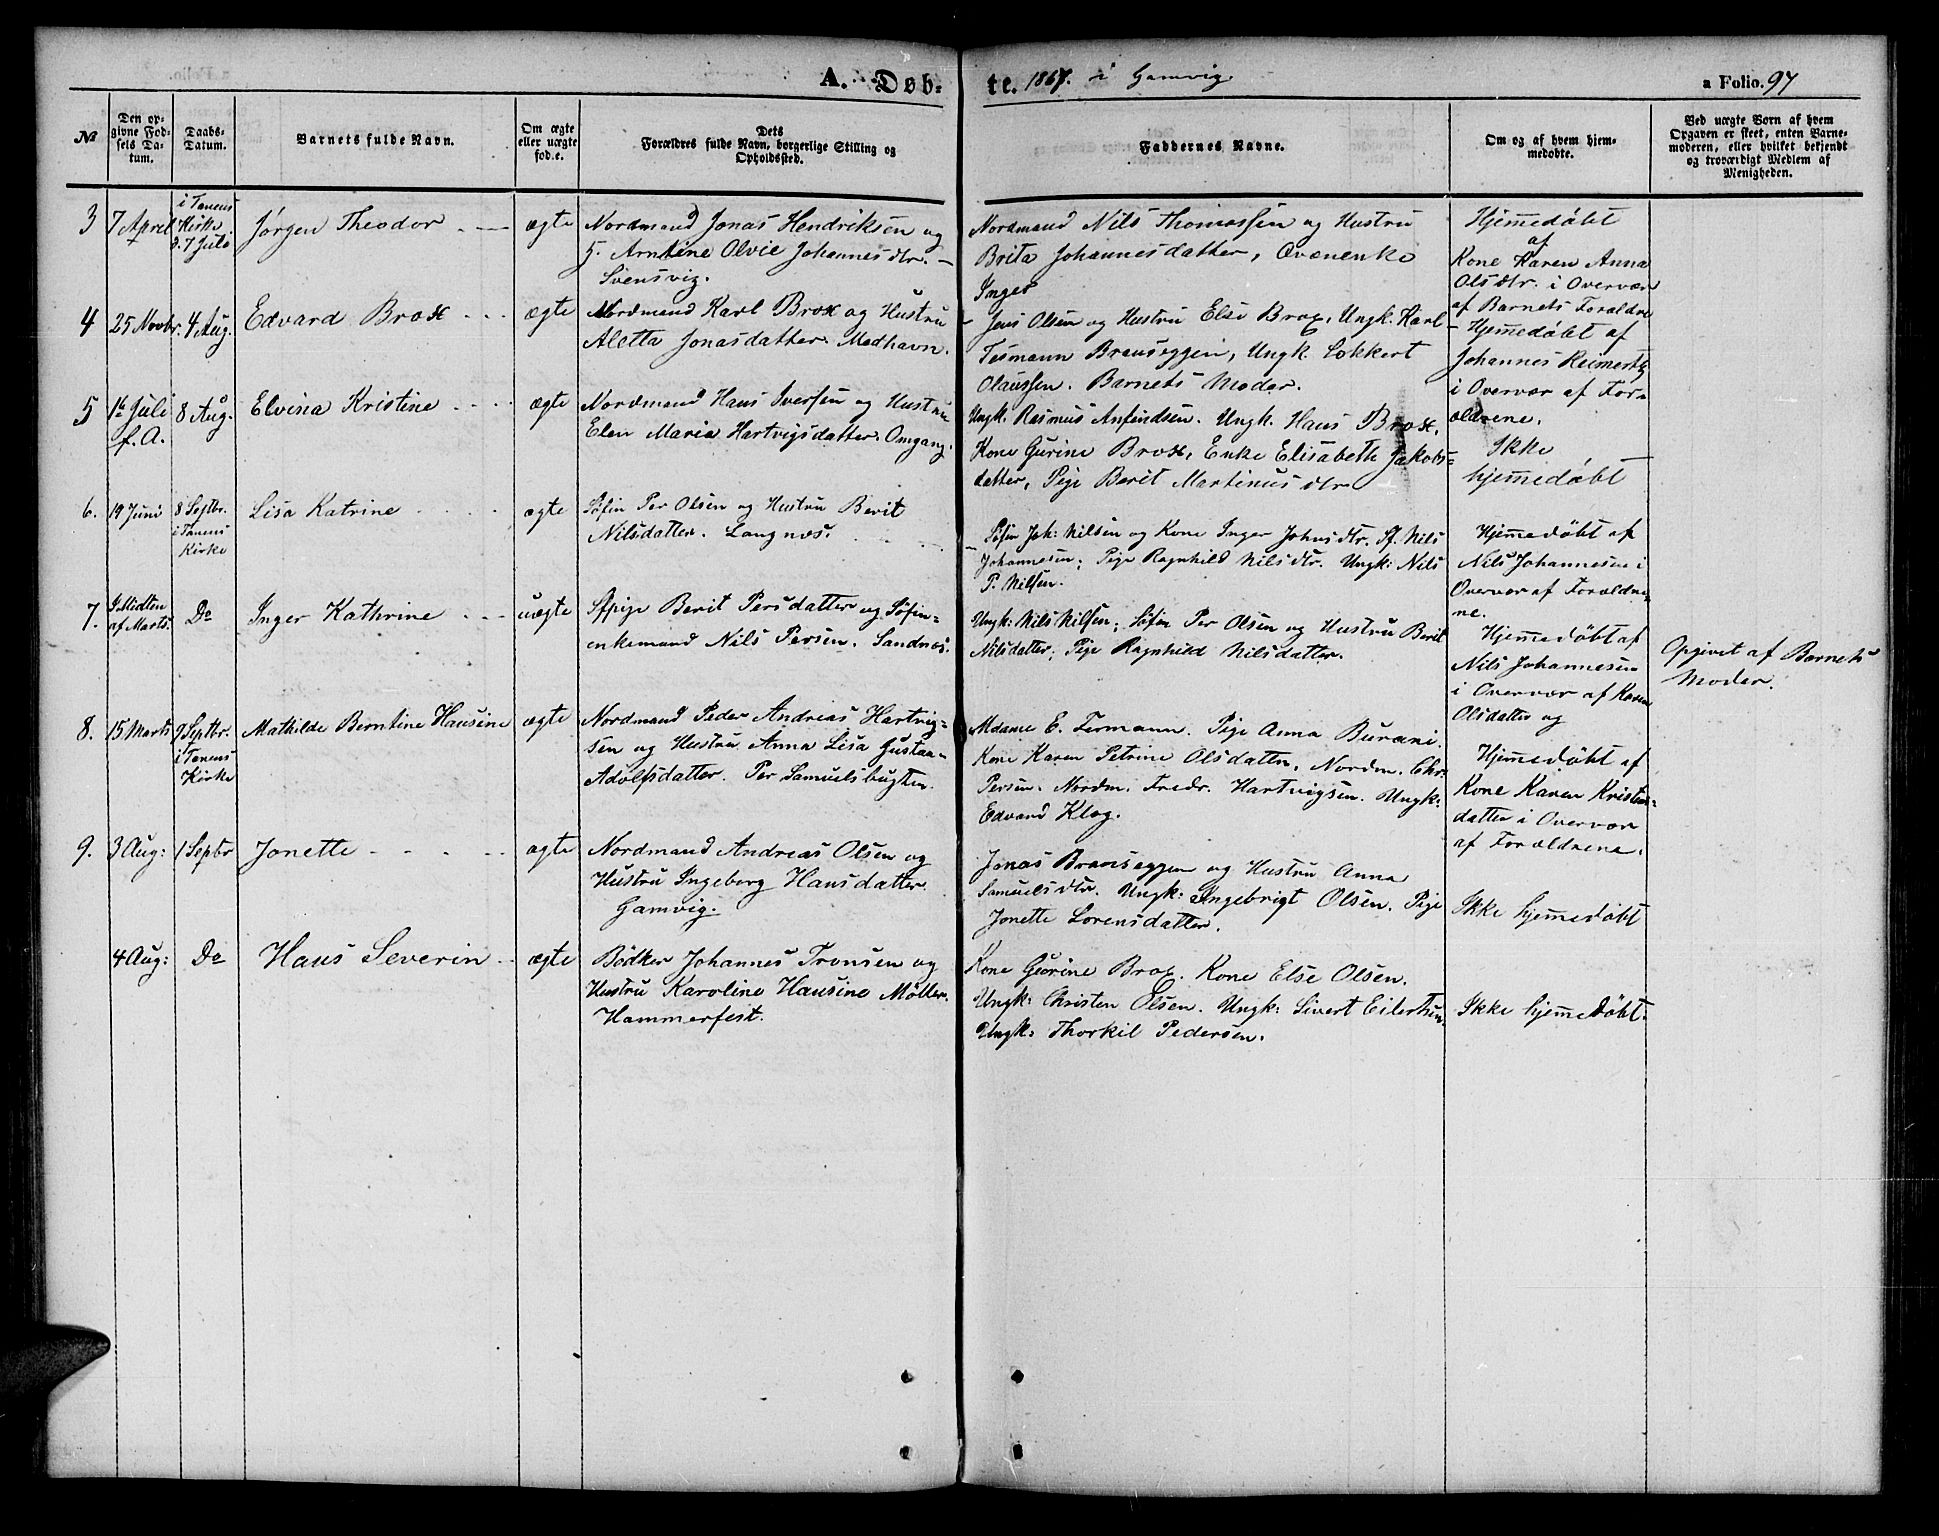 A. Døb-
te. 1867. i Gamvig.
a Folio. 97
№
Den op-
givne Fød-
sels Da-
tum.
Daabs-
Datum.
Barnets fulde Navn.
Om ægte
eller uægte
fød.e.
Dets
Forældres fulde Navn, borgerlige Stilling og
Opholdssted.
Faddernes Navne.
Om og af hvem hjem-
medøbte.
Ved uægte Børn af hvem
Opgaven er skeet, enten Barne-
moderen, eller hvilket bekjendt
og troværdigt Medlem af
Menigheden.
3
7 April
i Tanens
Kirke
d. 7 Juli
Jørgen Theodor
ægte
Nordmand Jonas Hendriksen og
H. Arntine Olvie Johannesdtr.
Svensvig.
Nordmand Nils Thomassen og Hustru
Brita Johannesdatter, Qvænenke
Inger
Hjemmedøbt
af
Kone Karen Anna
Olsdtr. i Overvær
af Barnets Forældre
4
25 Novbr.
4 Aug.
Edvard Brox
ægte
Nordmand Karl Brox og Hustru
Aletta Jonasdatter. Medhavn.
Jens Olsen og Hustru Else Brox, Ungk. Karl
Tesmann Brauseggen, Ungk. Lokkert
Olaussen. Barnets Moder.
Hjemmedøbt af
Johannes Reimertz
i Overvær af For-
ældrene.
5
16 Juli
f. A.
8 Aug.
Elvina Kristine
ægte
Nordmand Hans Iversen og Hustru
Elen Maria Hartvigsdatter. Omgang.
Ungk. Rasmus Anfindsen. Ungk. Hans Brox.
Kone Gurine Brox, Enke Elisabeth Jakobs-
datter, Pige Berit Martinusdtr.
Ikke
hjemmedøbt
6.
19 Juni
8 Septbr.
i Tanens
Kirke
Lisa Katrine
ægte
Søfin Per Olsen og Hustru Berit
Nilsdatter. Langnæs.
Søfin Joh: Nilsen og Kone Inger Johnsdtr. Sf. Nils
Johannesen; Pige Ragnhild Nilsdtr. Ungk: Nils
P. Nilsen.
Hjemmedøbt af
Nils Johannesen i
Overvær af Forældre-
ne.
7.
I Midten
af Marts.
Do
Inger Kathrine
uægte
Sfpige Berit Persdatter og Søfin-
enkemand Nils Persen. Sandnæs.
Ungk: Nils Nilsen; Søfin Per Olsen og Hustru Berit
Nilsdatter; Pige Ragnhild Nilsdatter.
Hjemmedøbt af
Nils Johannesen
i Overvær af Karen
Olsdatter og
Opgivet af Barnets
Moder.
8.
15 Marts
9 Septbr.
i Tanens
Kirke
Mathilde Berntine Hansine
ægte
Nordmand Peder Andreas Hartvig-
sen og Hustru Anna Lisa Gustaa-
Adolfsdatter. Per Samuelsbugten.
Mdame E. Fermann. Pige Anna Burani.
Kone Karen Petrine Olsdatter, Nordm. Chr.
Persen. Nordm. Fredr. Hartvigsen. Ungk:
Edvard Klog.
Hjemmedøbt af
Kone Karen Kristens-
datter i Overvær
af Forældrene.
9.
3 Aug:
1 Septbr
Jonette
ægte
Nordmand Andreas Olsen og
Hustru Ingeborg Hansdatter
Gamvig.
Jonas Brauseggen og Hustru Anna
Samuelsdtr. Ungk: Ingebrigt Olsen. Pige
Jonette Lorensdatter.
Ikke hjemmedøbt
4 Aug:
Do
Hans Severin
ægte
Bødker Johannes Tronsen og
Hustru Karoline Hansine Møller.
Hammerfest.
Kone Gurine Brox. Kone Else Olsen.
Ungk: Christen Olsen. Ungk: Sivert Eilertsen.
Ungk: Thorkil Pedersen.
Ikke hjemmedøbt.